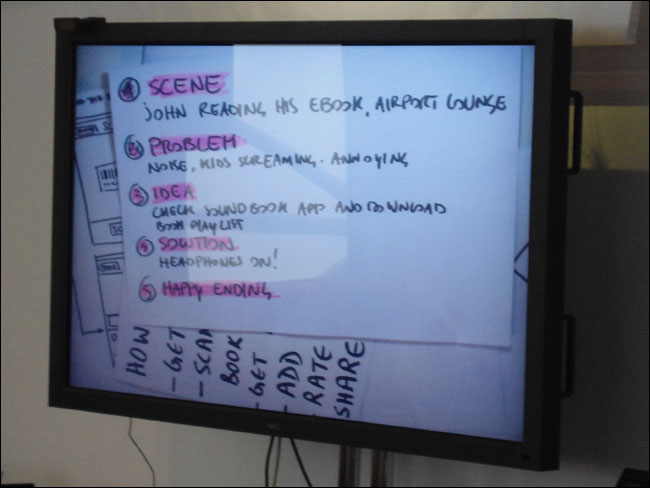 ① SCENE
JOHN READING HIS EBOOK, AIRPORT LOUNGE
② PROBLEM
NOISE, KIDS SCREAMING. ANNOYING
③ IDEA
CHECK SOUNDBOOK APP AND DOWNLOAD
BOOK PLAYLIST
④ SOLUTION
HEADPHONES ON!
⑤ HAPPY ENDING
HOW
- GET
- SCAN
BOOK
- GET
- ADD
- RATE
SHARE
NEC